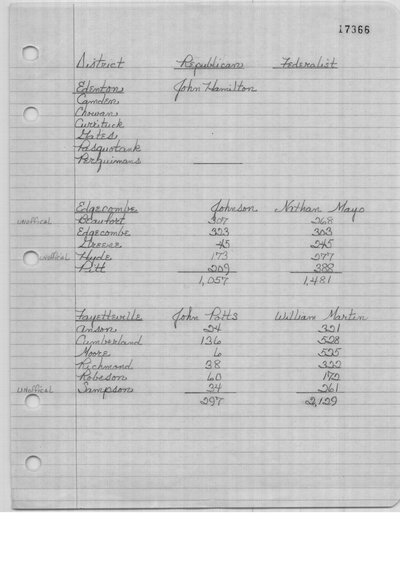 17366
District Republican Federalist
Edenton John Hamilton
Camden
Chowan
Currituck
Gates
Pasquotank
Perquimans
Edgecombe Johnson Nathan Mayo
unoffical Beaufort 307 268
Edgecombe 323 303
Greene 45 245
unoffical Hyde 173 277
Pitt 209 388
1,057 1,481
Fayetteville John Potts William Martin
Anson 24 321
Cumberland 136 528
Moore 6 525
Richmond 38 322
Robeson 60 172
unoffical Sampson 34 261
297 2,129